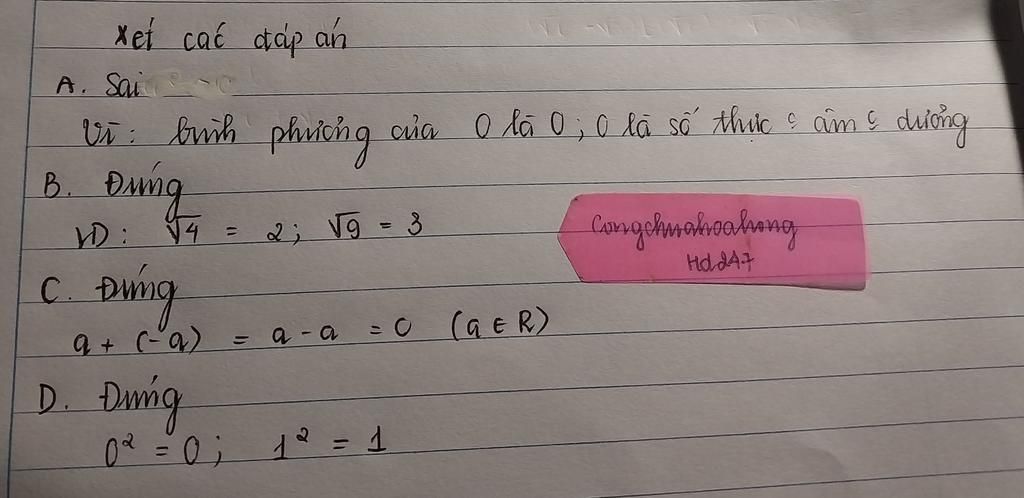 Xét các đáp án
A. Sai
Vì: bình phương của 0 là 0; 0 là số thực ç âm ç dương
B. Đúng
VD: √4 = 2; √9 = 3
Congchuahoahong
Hd247
C. Đúng
a + (-a) = a - a = 0 (a ∈ R)
D. Đúng
0² = 0; 1² = 1